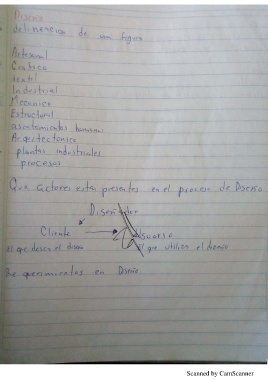 Diseño
delineacion de una figura
Artesanal
Grafico
textil
Industrial
Mecanico
Estructural
asentamientos humanos
Arquitectonico
plantas industriales
procesos
Que actores estan presentes en el proceso de Diseño
Diseñador
Cliente
Usuario
El que desea el diseño
El que utiliza el diseño
en Diseño
Scanned by CamScanner